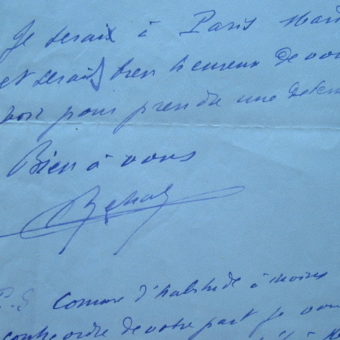 Je serais à Paris
et serais bien heureux de vous
voir pour prendre une
Bien à vous
P.S. Comme d'habitude à moins
contre ordre de votre part je vous